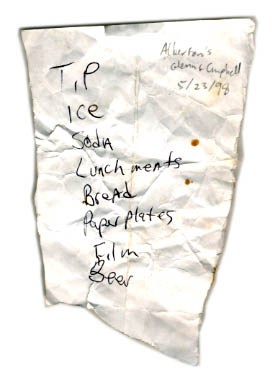 Alberton's
Glenn & Campbell
5/23/98
T.P
Ice
Soda
Lunch ments
Bread
Paper plates
Film
Beer